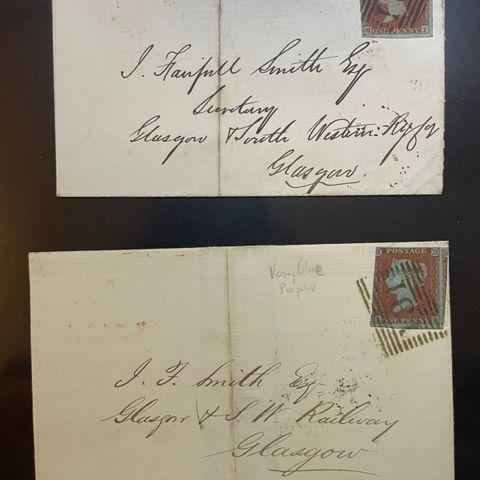 ONE PENNY
J. Fairfull Smith Esq
Secretary
Glasgow & South Western Ry
Glasgow
Very Blue
Paper
POSTAGE
ONE PENNY
J. F. Smith Esq
Glasgow & S. W. Railway
Glasgow